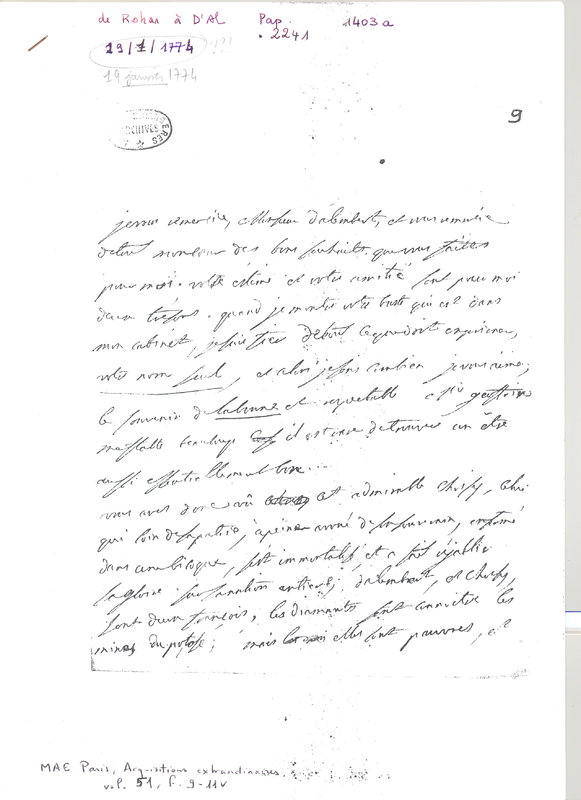 de Rohan à D'Al Pap. 1403a
2241
29/1/1774 ???
19 janvier 1774
ARCHIVES
9
je vous remercie, Monsieur d'alembert, et vous remercie
de tout mon coeur des bons souhaits que vous faites
pour moi. votre estime et votre amitié sont pour moi
deux trésors. quand je montre votre buste qui est dans
mon cabinet, je suis fier de tout ce que doit inspirer
votre nom seul, et alors je sens combien je vous aime;
le souvenir de et respectable
me flatte beaucoup il est rare de trouver un être
aussi essentiellement bon...
vous avez donc vû cet admirable chirfy, celui
qui loin de sa patrie, à peine avoué de son souverain, enfermé
dans une bicoque, s'est immortalisé, et a fait réjaillir
sa gloire sur sa nation entiere; dalembert, et choisy,
sont deux françois, les diamants font connoitre les
mines du potose; mais elles sont pauvres, et
MAE Paris, Acquisitions extraordinaires,
vol. 51, f. 9-11v